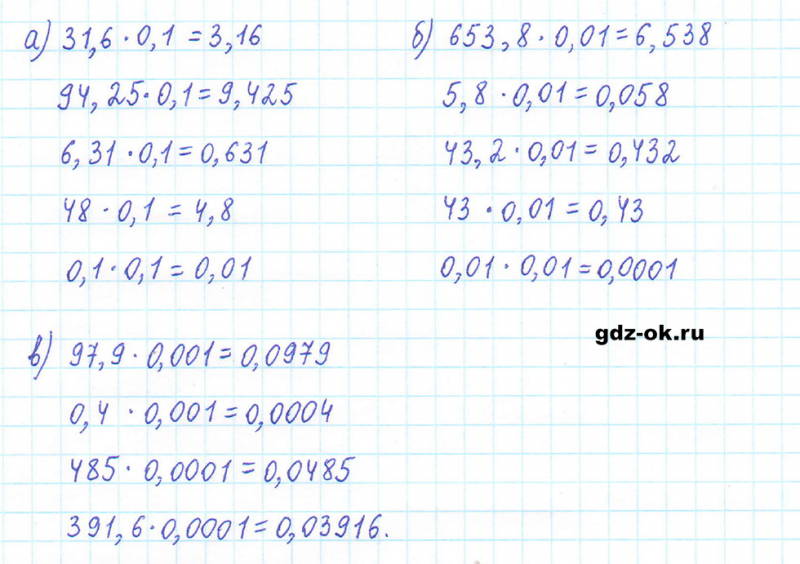 а) 31,6 · 0,1 = 3,16
94,25 · 0,1 = 9,425
6,31 · 0,1 = 0,631
48 · 0,1 = 4,8
0,1 · 0,1 = 0,01
б) 653,8 · 0,01 = 6,538
5,8 · 0,01 = 0,058
43,2 · 0,01 = 0,432
43 · 0,01 = 0,43
0,01 · 0,01 = 0,0001
gdz-ok.ru
в) 97,9 · 0,001 = 0,0979
0,4 · 0,001 = 0,0004
485 · 0,0001 = 0,0485
391,6 · 0,0001 = 0,03916.